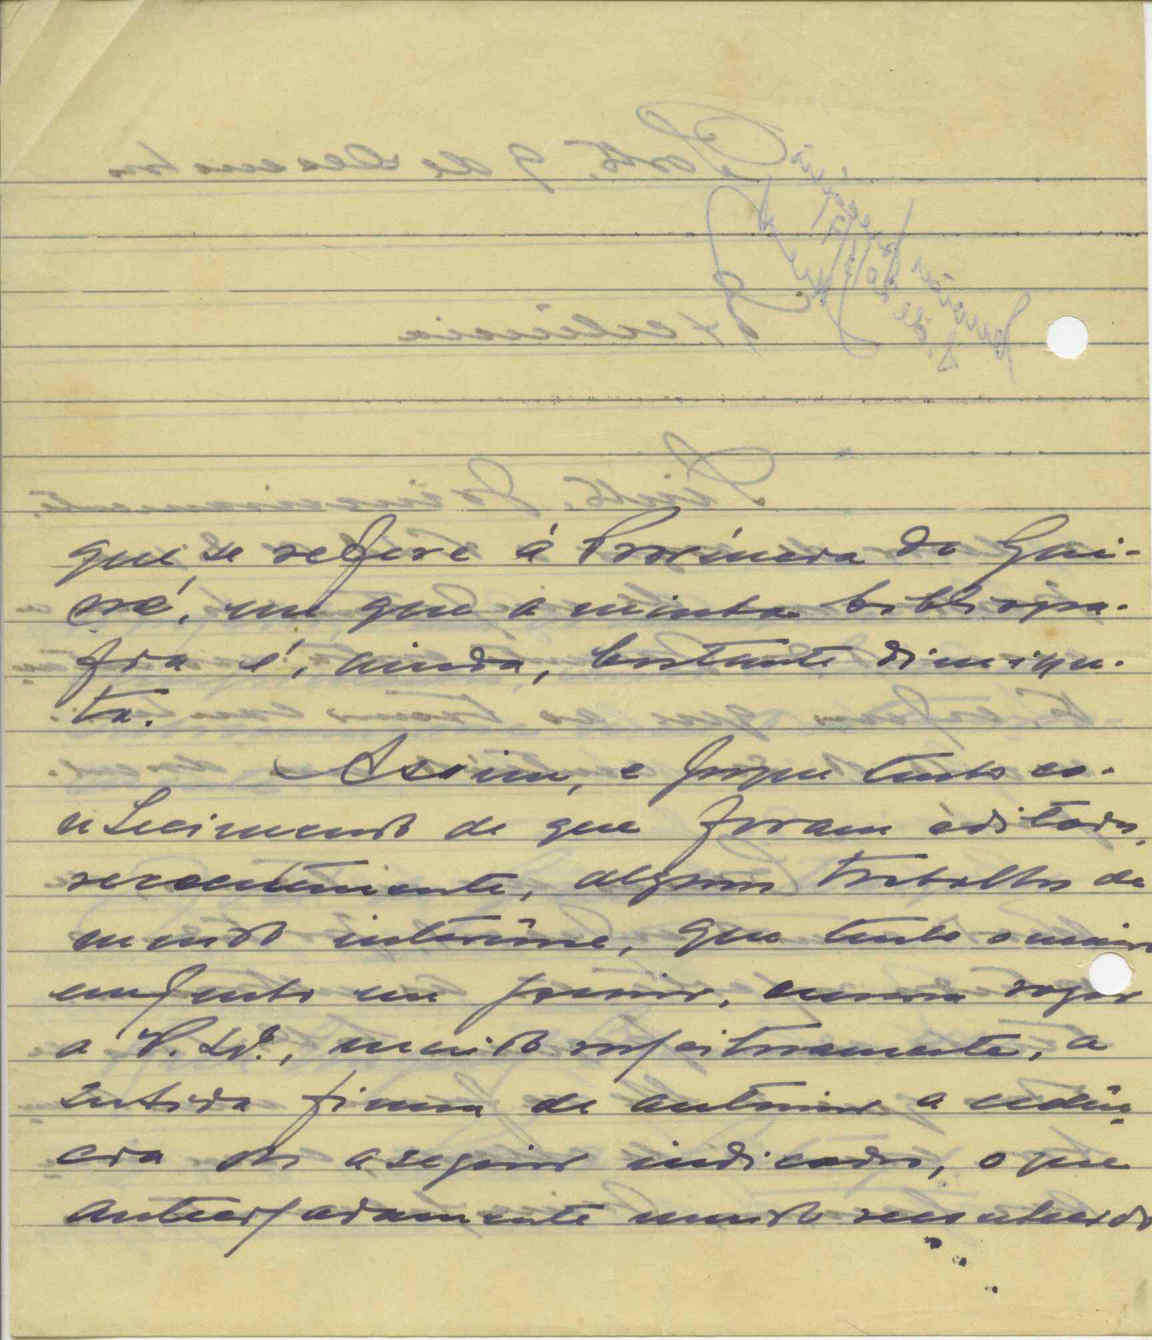 que se refere á Provincia da Gui-
né, em que a minha bibliogra-
fia é, ainda, bastante diminu-
ta.
Assim, e porque tenho co-
nhecimento de que foram editados,
recentemente, alguns trabalhos de
muito interêsse, que tenho o maior
empenho em possuir, rogar
a V. Exª., muito respeitosamente, a
subida fineza de autorisar a cedên
cia dos a seguir indicados, o que
antecipadamente muito reconhecido